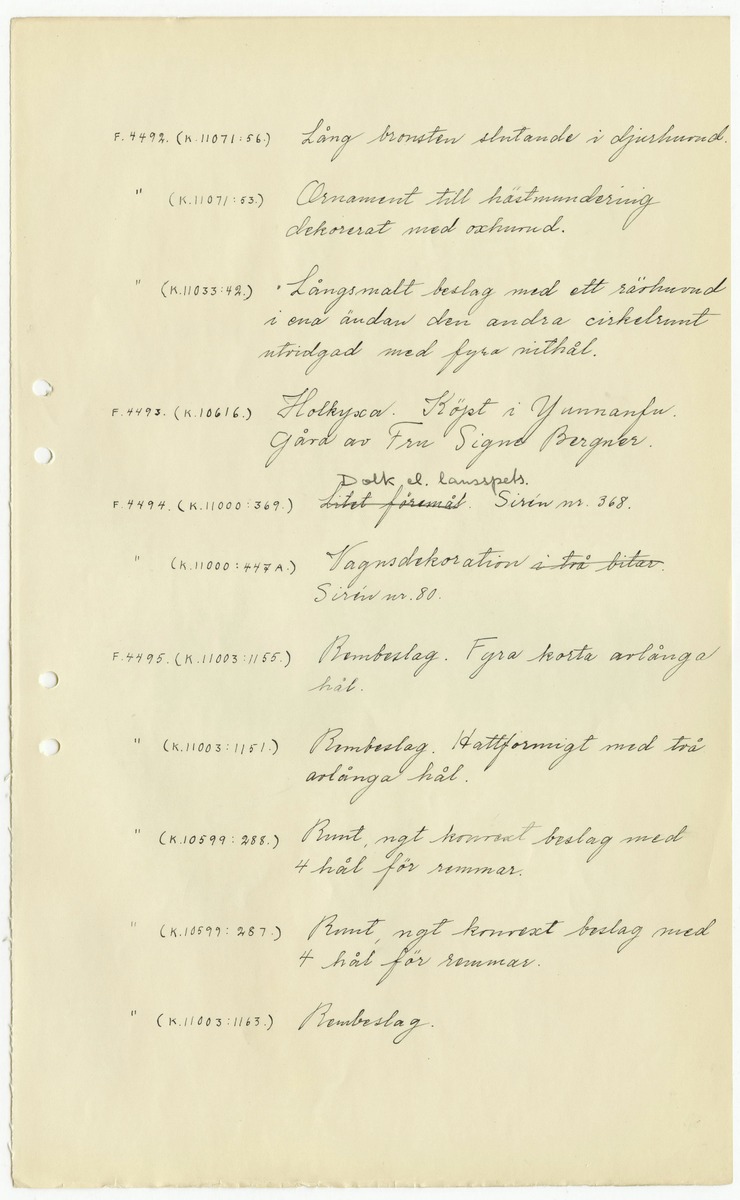 F.4492. (K.11071:56.) Lång bronsten slutande i djurhuvud.
" (K.11071:53.) Ornament till hästmundering
dekorerat med oxhuvud.
" (K.11033:42.) Långsmalt beslag med ett rävhuvud
i ena ändan den andra cirkelrunt
utvidgad med fyra nithål.
F.4493. (K.10616.) Holkyxa. Köpt i Yunnanfu.
Gåva av Fru Signe Bergner.
Dolk el. lansspets.
F.4494. (K.11000:369.) Litet föremål. Sirén nr. 368.
" (K.11000:447A.) Vagnsdekoration i två bitar.
Sirén nr. 80.
F.4495. (K.11003:1155.) Rembeslag. Fyra korta avlånga
hål.
" (K.11003:1151.) Rembeslag. Hattformigt med två
avlånga hål.
" (K.10599:288.) Runt, ngt konvext beslag med
4 hål för remmar.
" (K.10599:287.) Runt, ngt konvext beslag med
4 hål för remmar.
" (K.11003:1163.) Rembeslag.